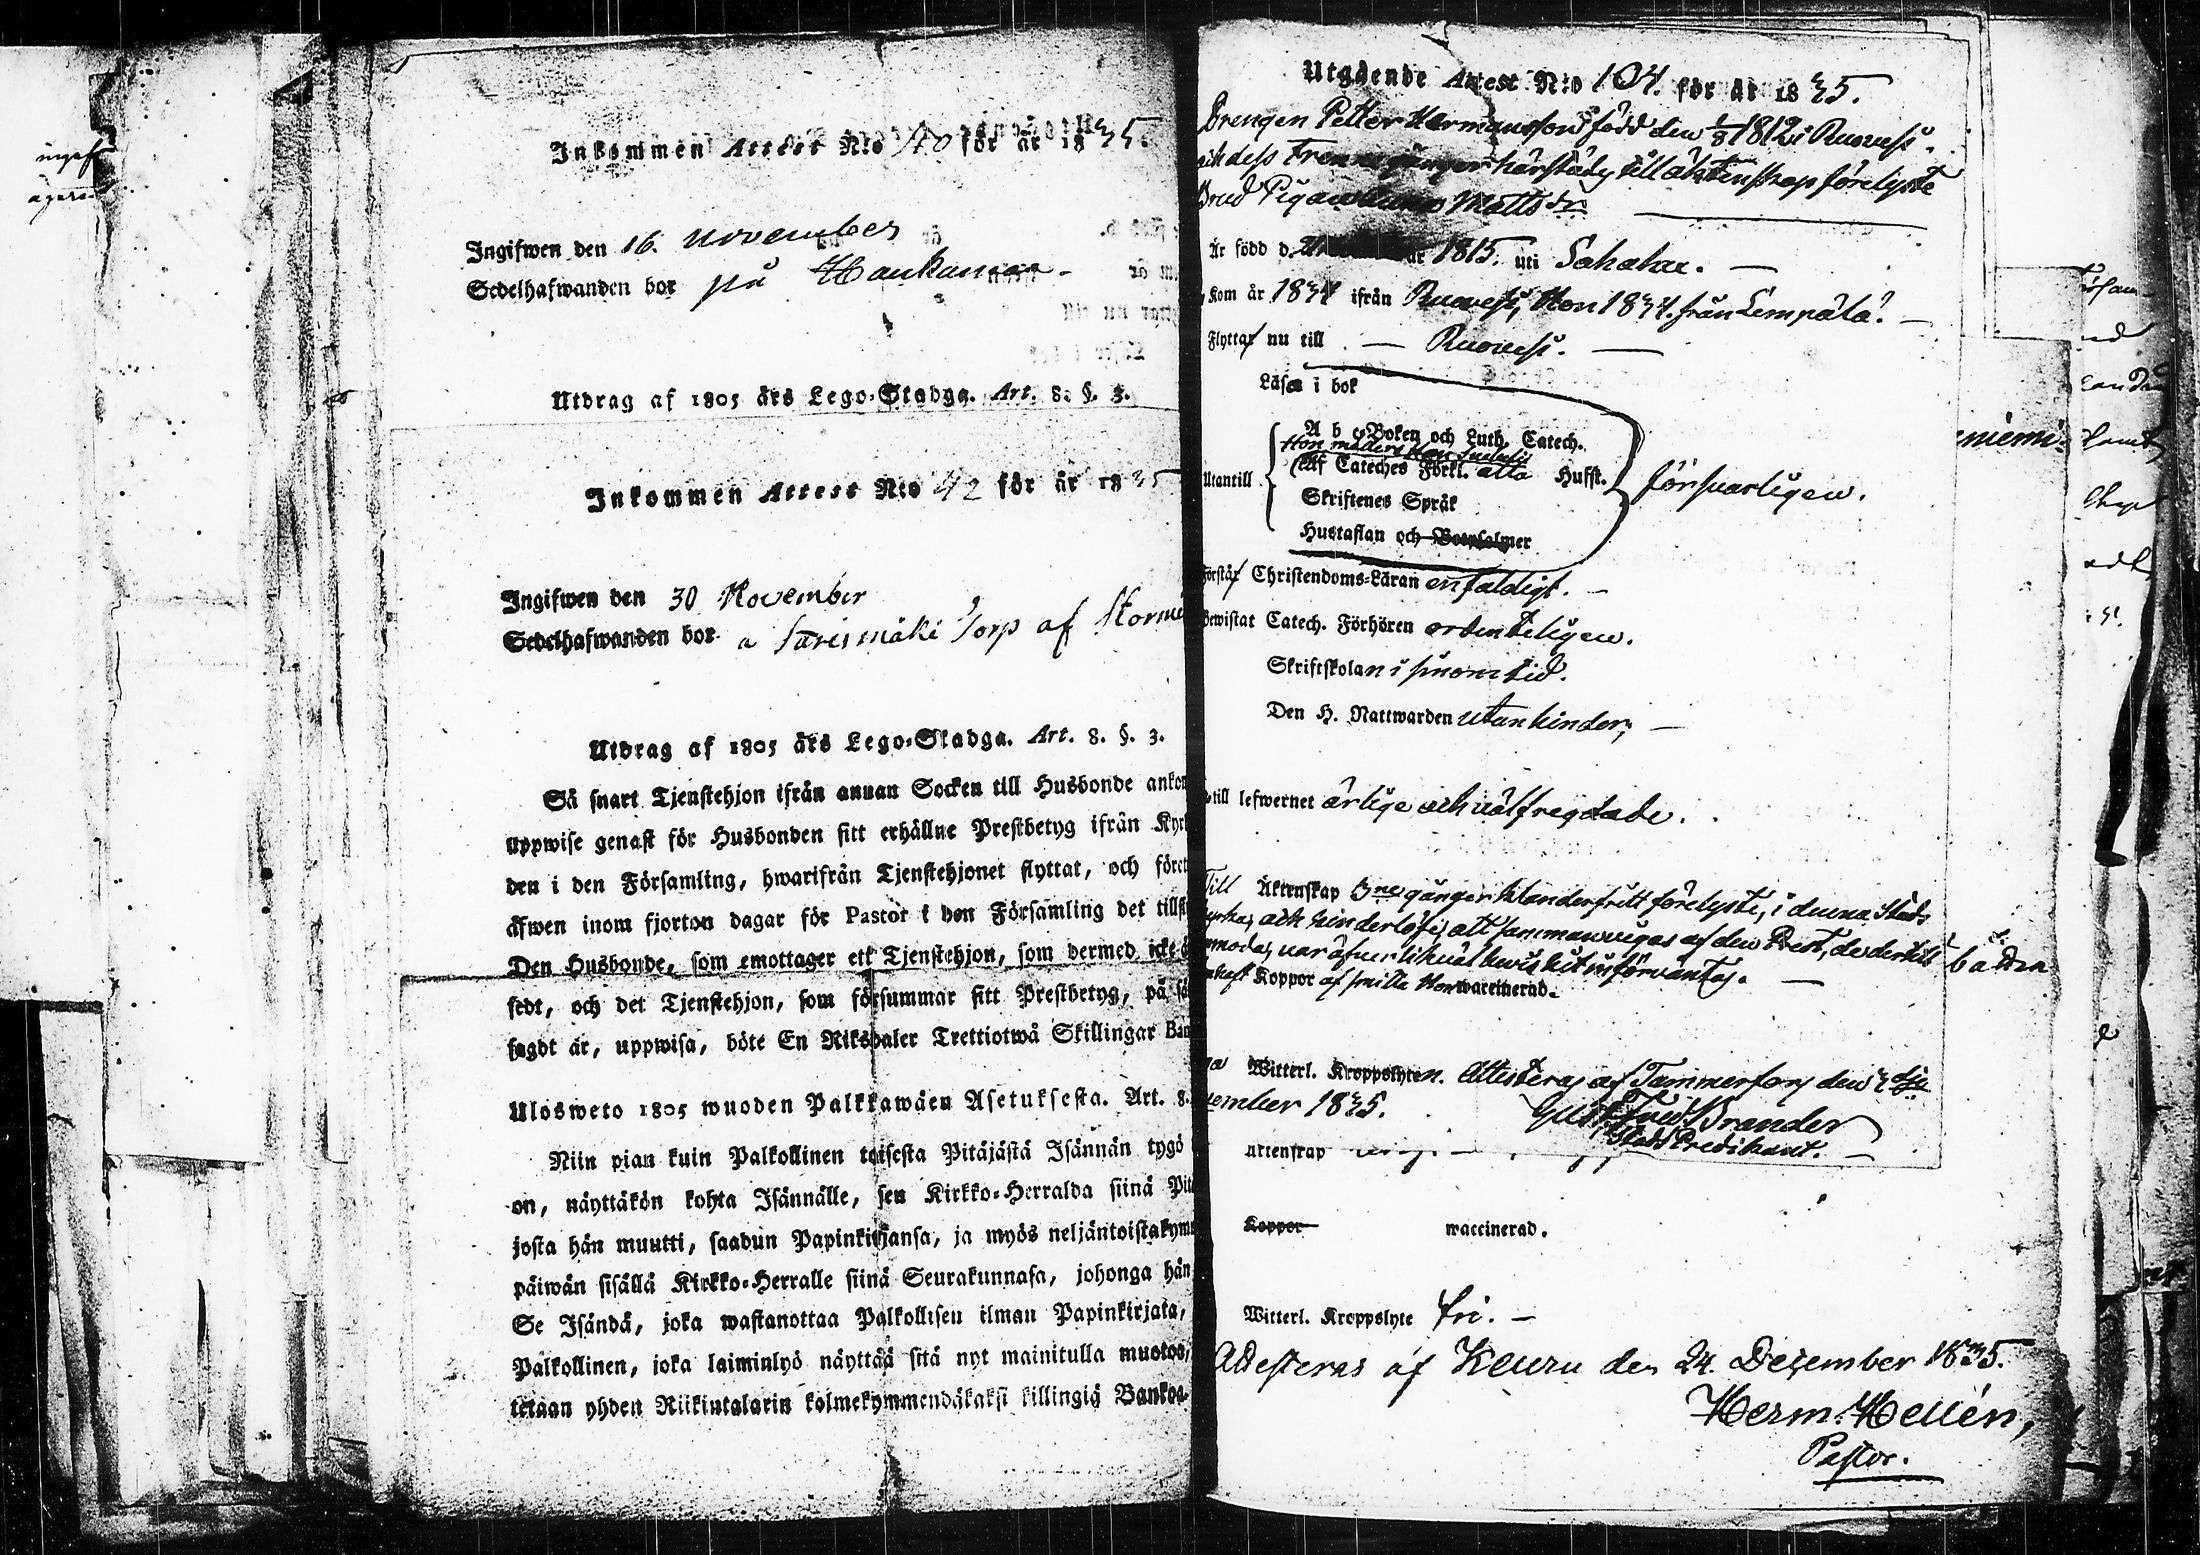 Inkommen Attest N:o 40 för år 1835.
Ingifwen den 16. November
Sedelhafwanden bor på Haukamaa
Utdrag af 1805 års Lego-Stadga. Art. 8. §. 3.
Inkommen Attest N:o 42 för år 1835
Ingifwen den 30 November
Sedelhafwanden bor a Sarismäki Torp af
Utdrag af 1805 års Lego-Stadga. Art. 8. §. 3.
Så snart Tjenstehjon ifrån annan Socken till Husbonde ankom
uppwise genast för Husbonden sitt erhållne Prestbetyg ifrån Kyrk
den i den Församling, hwarifrån Tjenstehjonet flyttat, och förete
äfwen inom fjorton dagar för Pastor i den Församling det tillfl
Den Husbonde, som emottager ett Tjenstehjon, som dermed icke ä
sedt, och det Tjenstehjon, som försummar sitt Prestbetyg, på sä
sagdt är, uppwisa, böte En Riksdaler Trettiotwå Skillingar Ban
Ulosweto 1805 wuoden Palkkawäen Asetuksesta. Art. 8.
Niin pian kuin Palkollinen toisesta Pitäjästä Isännän tygö
on, näyttäkön kohta Isännälle, sen Kirkko-Herralda siinä Pit
josta hän muutti, saadun Papinkirjansa, ja myös neljäntoistakym
päiwän sisällä Kirkko-Herralle siinä Seurakunnasa, johonga hän
Se Isändä, joka wastanottaa Palkollisen ilman Papinkirjata,
Palkollinen, joka laiminlyö näyttää sitä nyt mainitulla muotos,
tetaan yhden Riikintalarin kolmekymmendäkaksi killingiä Bankos
Utgående Attest N:o 104. för år 1835.
Drengen Petter Hermansson född den 1/8 1812 i Ruovesi.
och dess härstädes till äktenskap förelyste
Brud Pigan Matts dr
Är född d. år 1815. uti Sahalax.
Kom år 1834 ifrån Ruovesi, Hon 1834. från Lempälä.
Flyttar nu till Ruovesi.
Läsa i bok
A b c-Boken och Luth. Catech.
Af Cateches Förkl. åtta Hufst.
Utantill
Skriftenes Språk
försvarligen.
Hustaflan och Botpsalmer
Förstår Christendoms-Läran enfaldigt.
Bewistat Catech. Förhören ordenteligen.
Skriftskolan i sinom tid.
Den H. Nattwarden utan hinder;
till lefwernet ärlige och välfregdade.
Till Äktenskap 3ne gånger klanderfritt förelyste, i denna Stads
kyrka, och hinderlöse, att sammanvigas af den Prest, de dertill
båda
var äfven likväl
haft Koppor af smitta Hon waccinerad.
Witterl. Kroppslyten. Attesteras af Tammerfors den
cember 1835.
Gust. Fred. Brander
Stads Predikant.
Äktenskap
Koppor waccinerad.
Witterl. Kroppslyte fri.
Attesteras af Keuru den 24. December 1835.
Herm. Hellén,
Pastor.